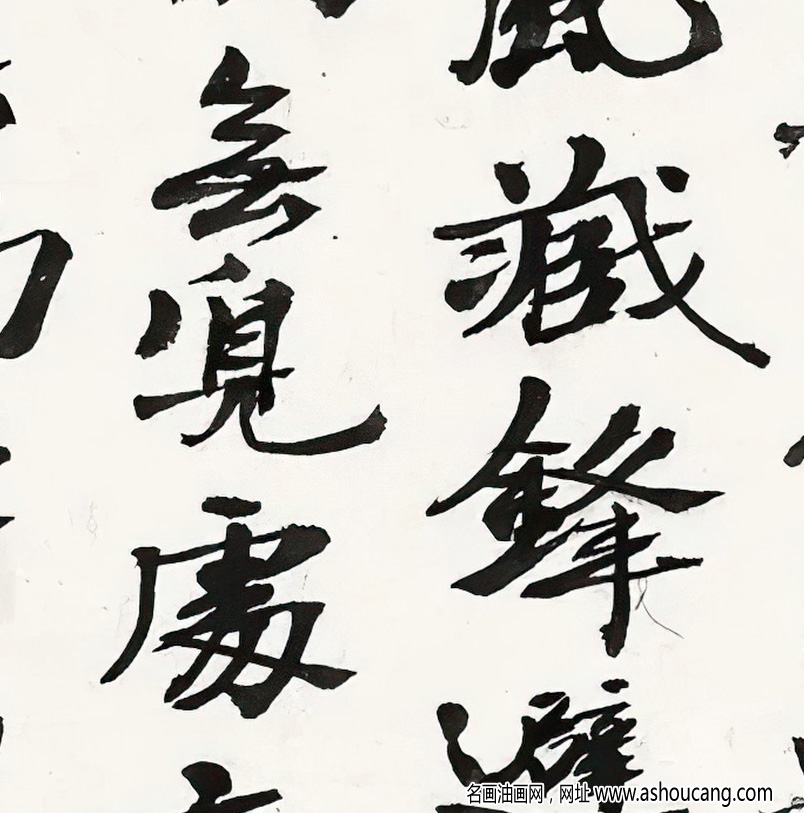 藏鋒避
無覓處
名画油画网，网址 www.ashoucang.com